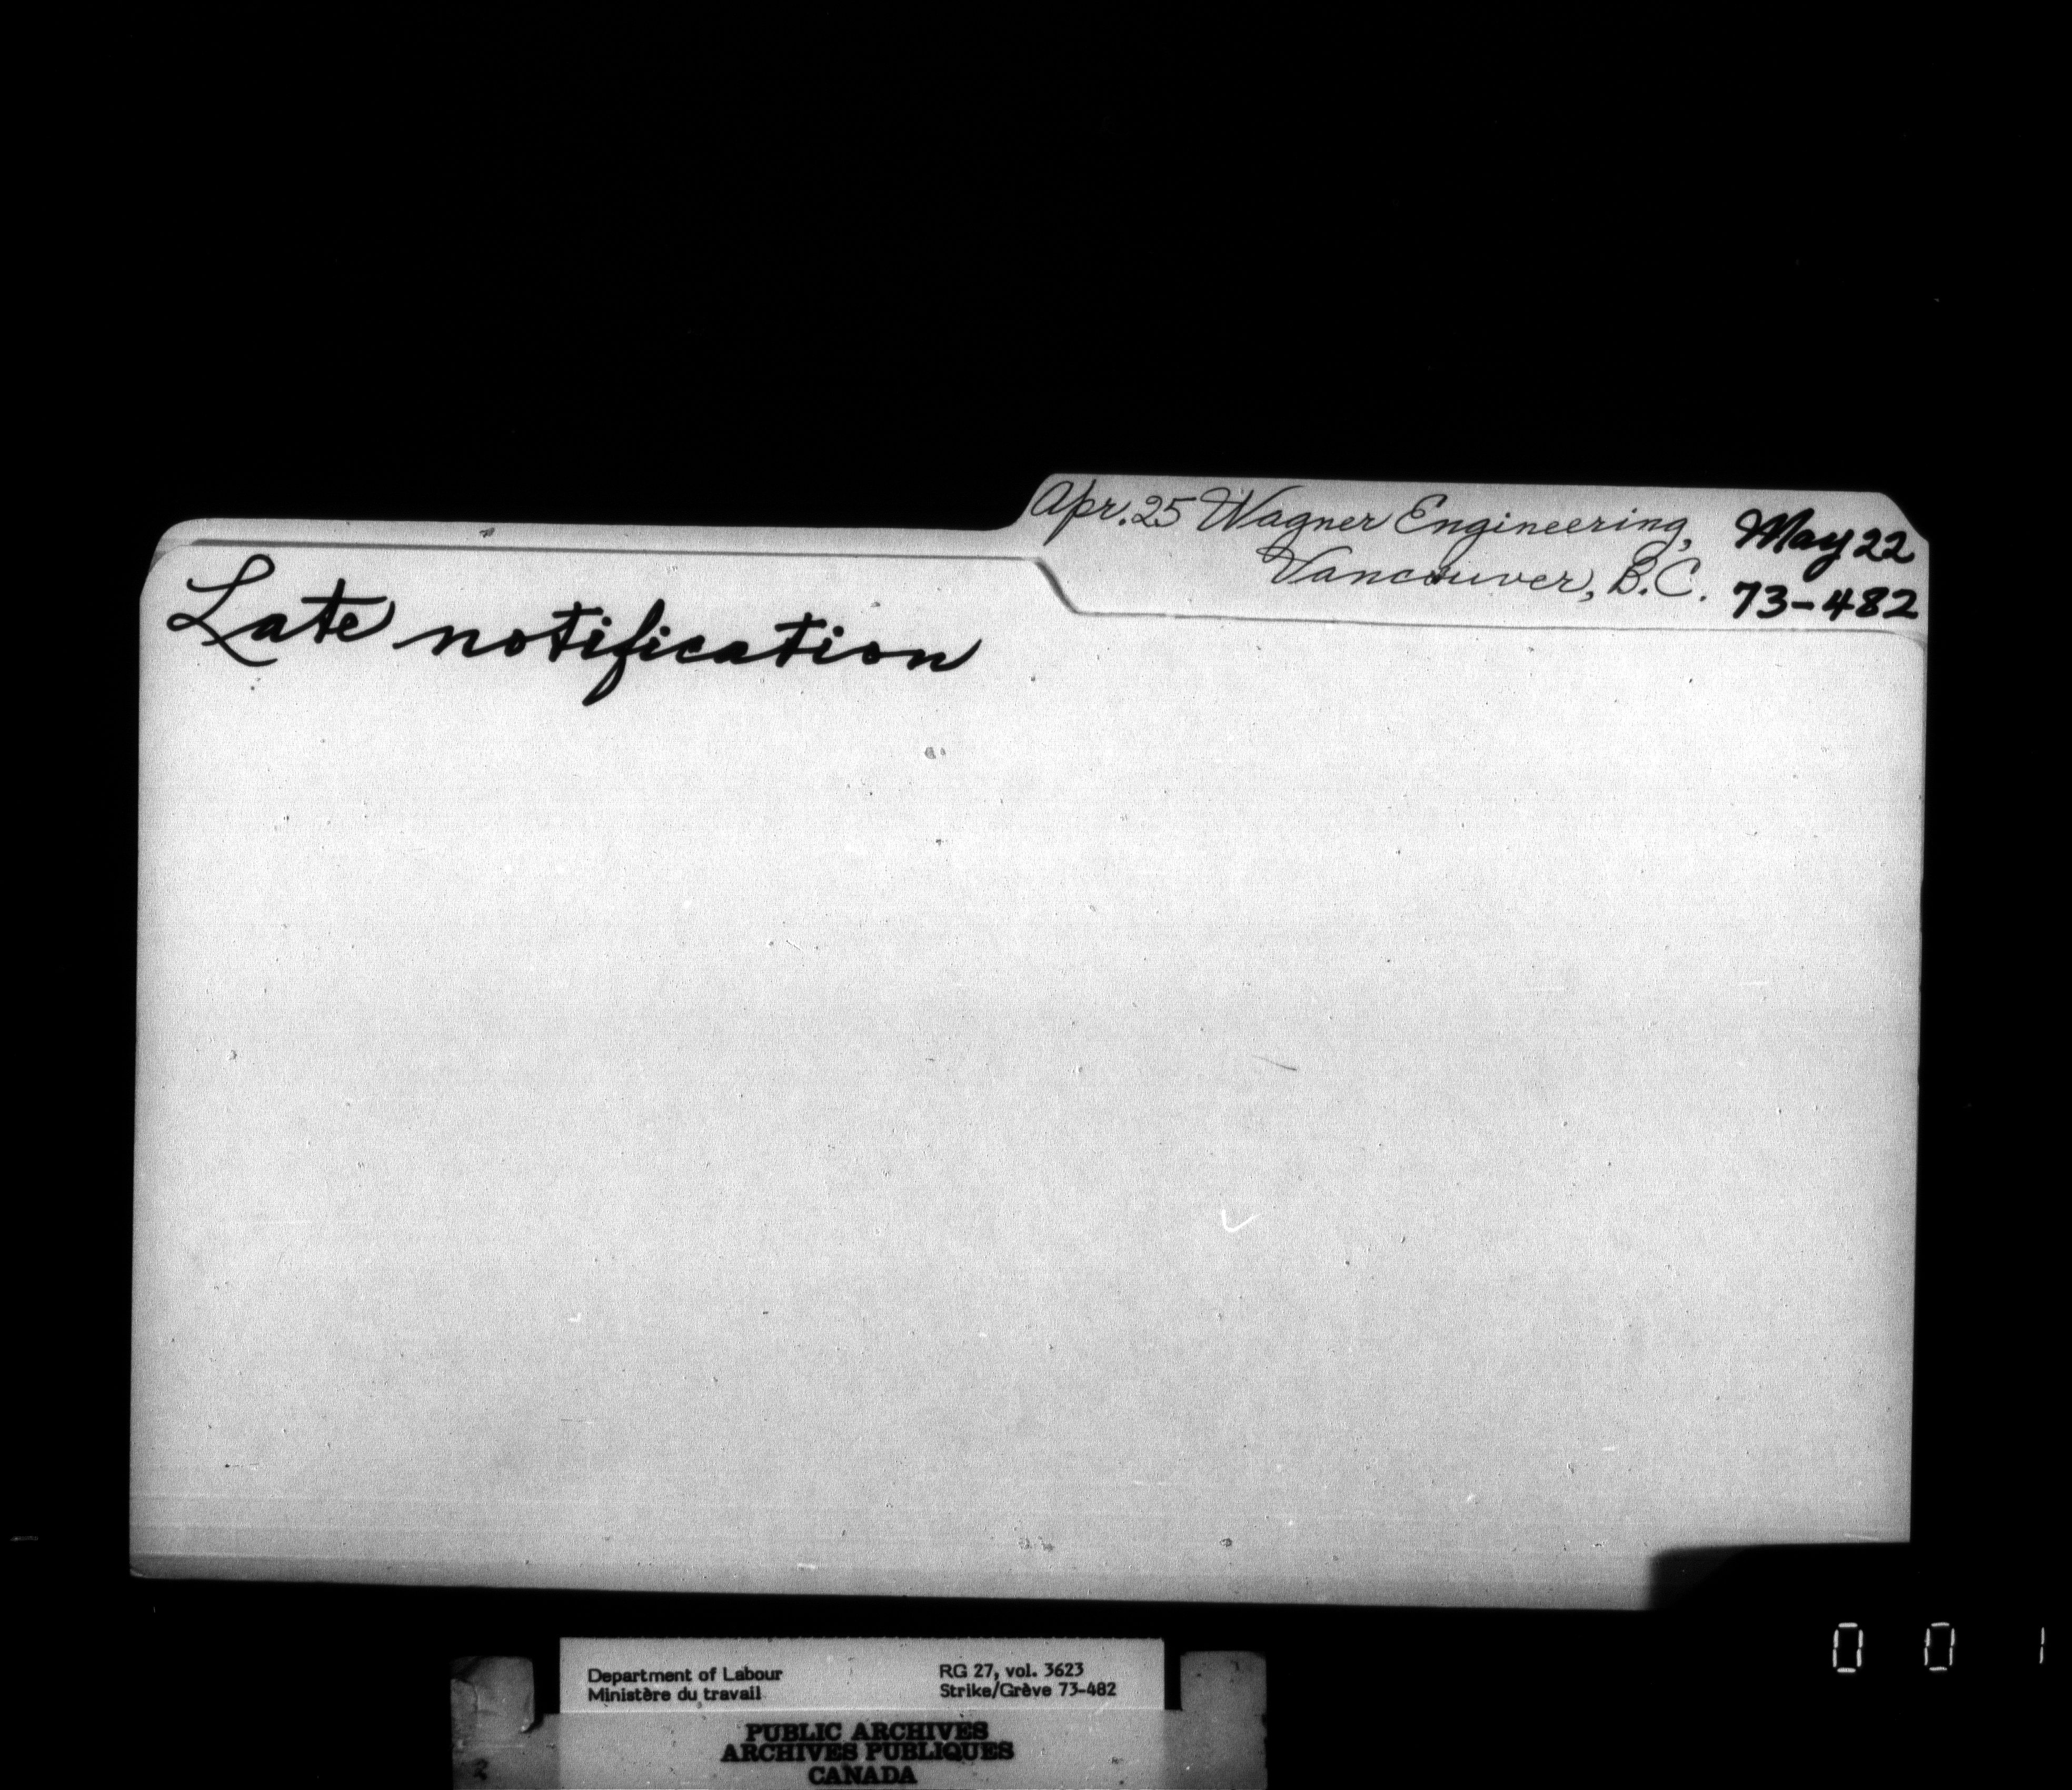 Apr. 25 Wagner Engineering, May 22
Vancouver, B.C. 73-482
Late notification
0 0 1
Department of Labour RG 27, vol. 3623
Ministère du travail Strike/Grève 73-482
PUBLIC ARCHIVES
ARCHIVES PUBLIQUES
CANADA
2